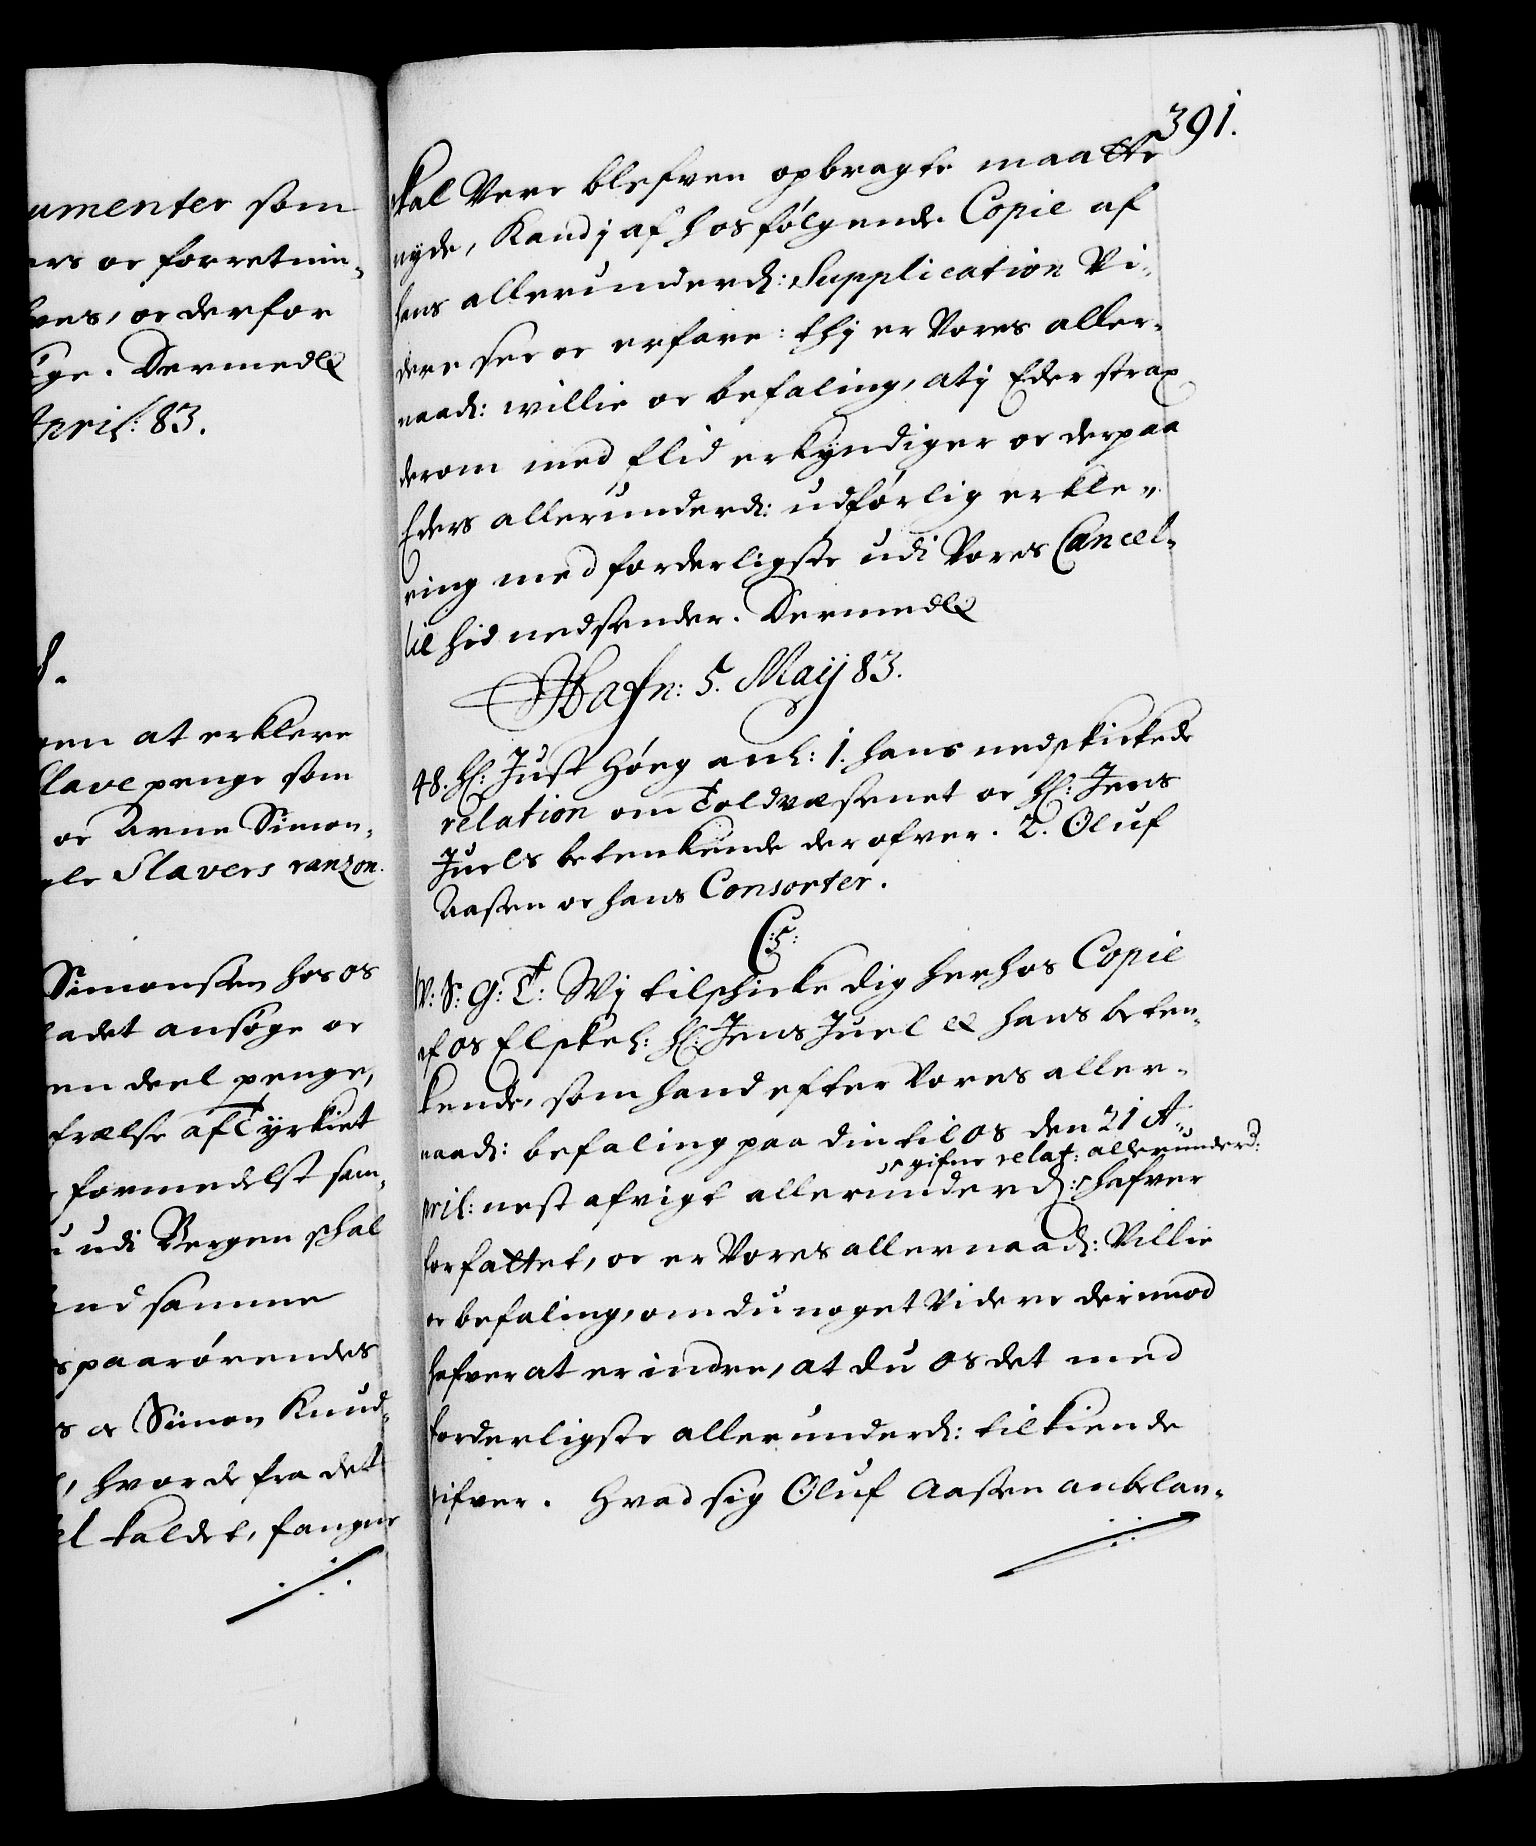 umenter som
ers oc forretnin-
hves, oc derfor
ige. Dermed &
April: 83.
gen at erklere
Slave penge som
oc Arne Simon-
gle Slavers ranzon.
Simonssen hos os
ladet ansøge oc
en deel penge,
frælse af Tyrkiet
formedelst som
udi Bergen schal
and samme
paarørendes
s oc Simon Knud-
, hvor de fra det
el kaldet, fangne
391.
skal Vere blefven opbragte maatte
nyde, Kand j af hosfølgende Copie af
hans allerunderd: Supplication Vi-
dere see oc erfare: thj er Vores aller-
naad: willie oc befaling, at j Eder strax
derom med flid erkyndiger oc derpaa
Eders allerunderd: udførlig erkle-
ring med forderligste udi Vores Cancel-
lie hid nedsender. Dermed &
Hafn: 5. Maij 83.
48. H: Just Høeg anl: 1. hans nedskickede
relation om Toldvæsenet oc H: Jens
Juels betenkende derofver. 2. Oluf
Aasen oc hans Consorter.
C:5:
W: S: G: T: Wj tilschicke dig herhos Copie
af os Elskel: H: Jens Juel & hans beten-
kende, som hand efter Vores aller-
naad: befaling paa din til os den 21 A-
pril: nest afvigt allerunderd: hafver
gifne relat: allerunderd:
forfattet, oc er Vores allernaad: Villie
oc befaling, om du noget Videre derimod
hafver at erindre, at du os det med
forderligste allerunderd: tilkiende
gifver. Hvad sig Oluf Aasen anbelan-